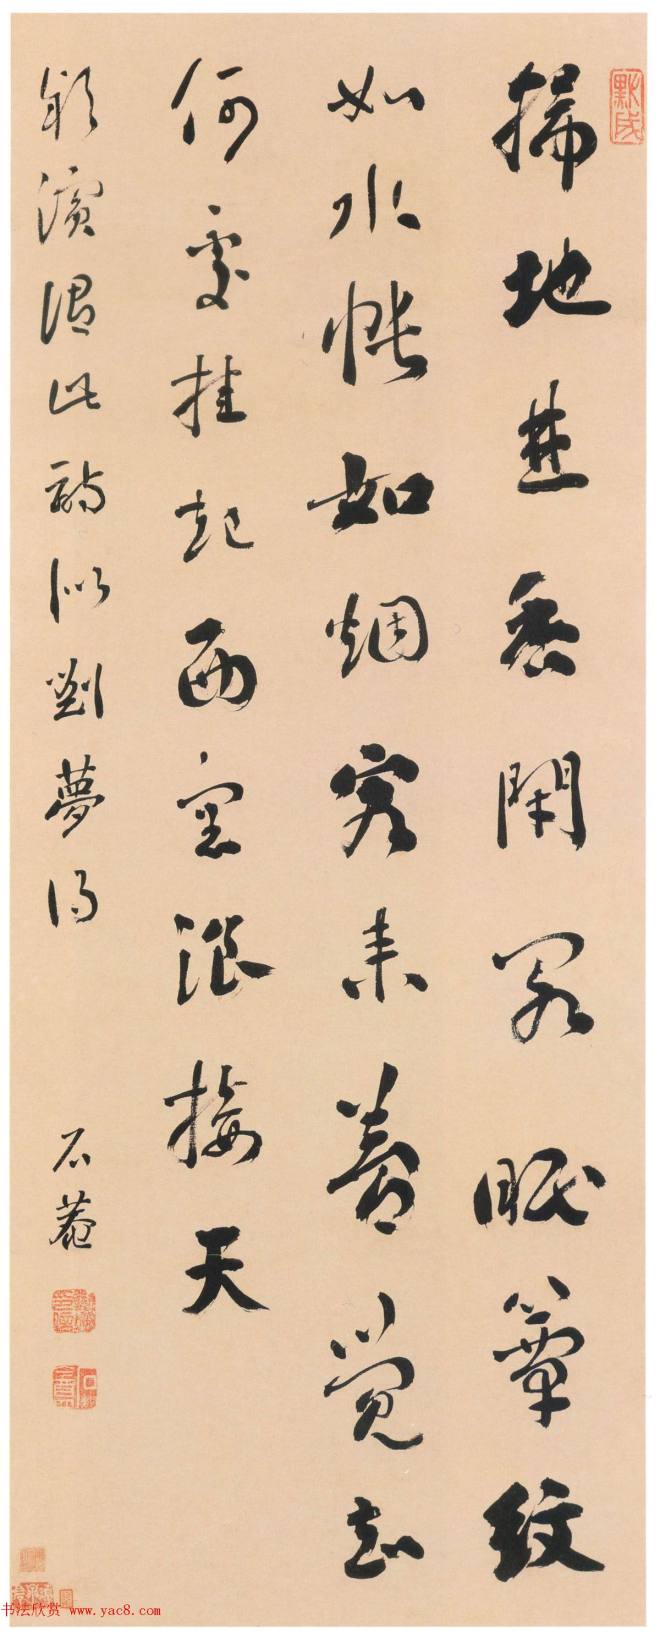 默成
掃地焚香閉閣眠簟紋
如水帳如烟客来夢覺知
何處挂起西窗浪接天
潁濱謂此詩似劉夢得
石菴
书法欣赏 www.yac8.com